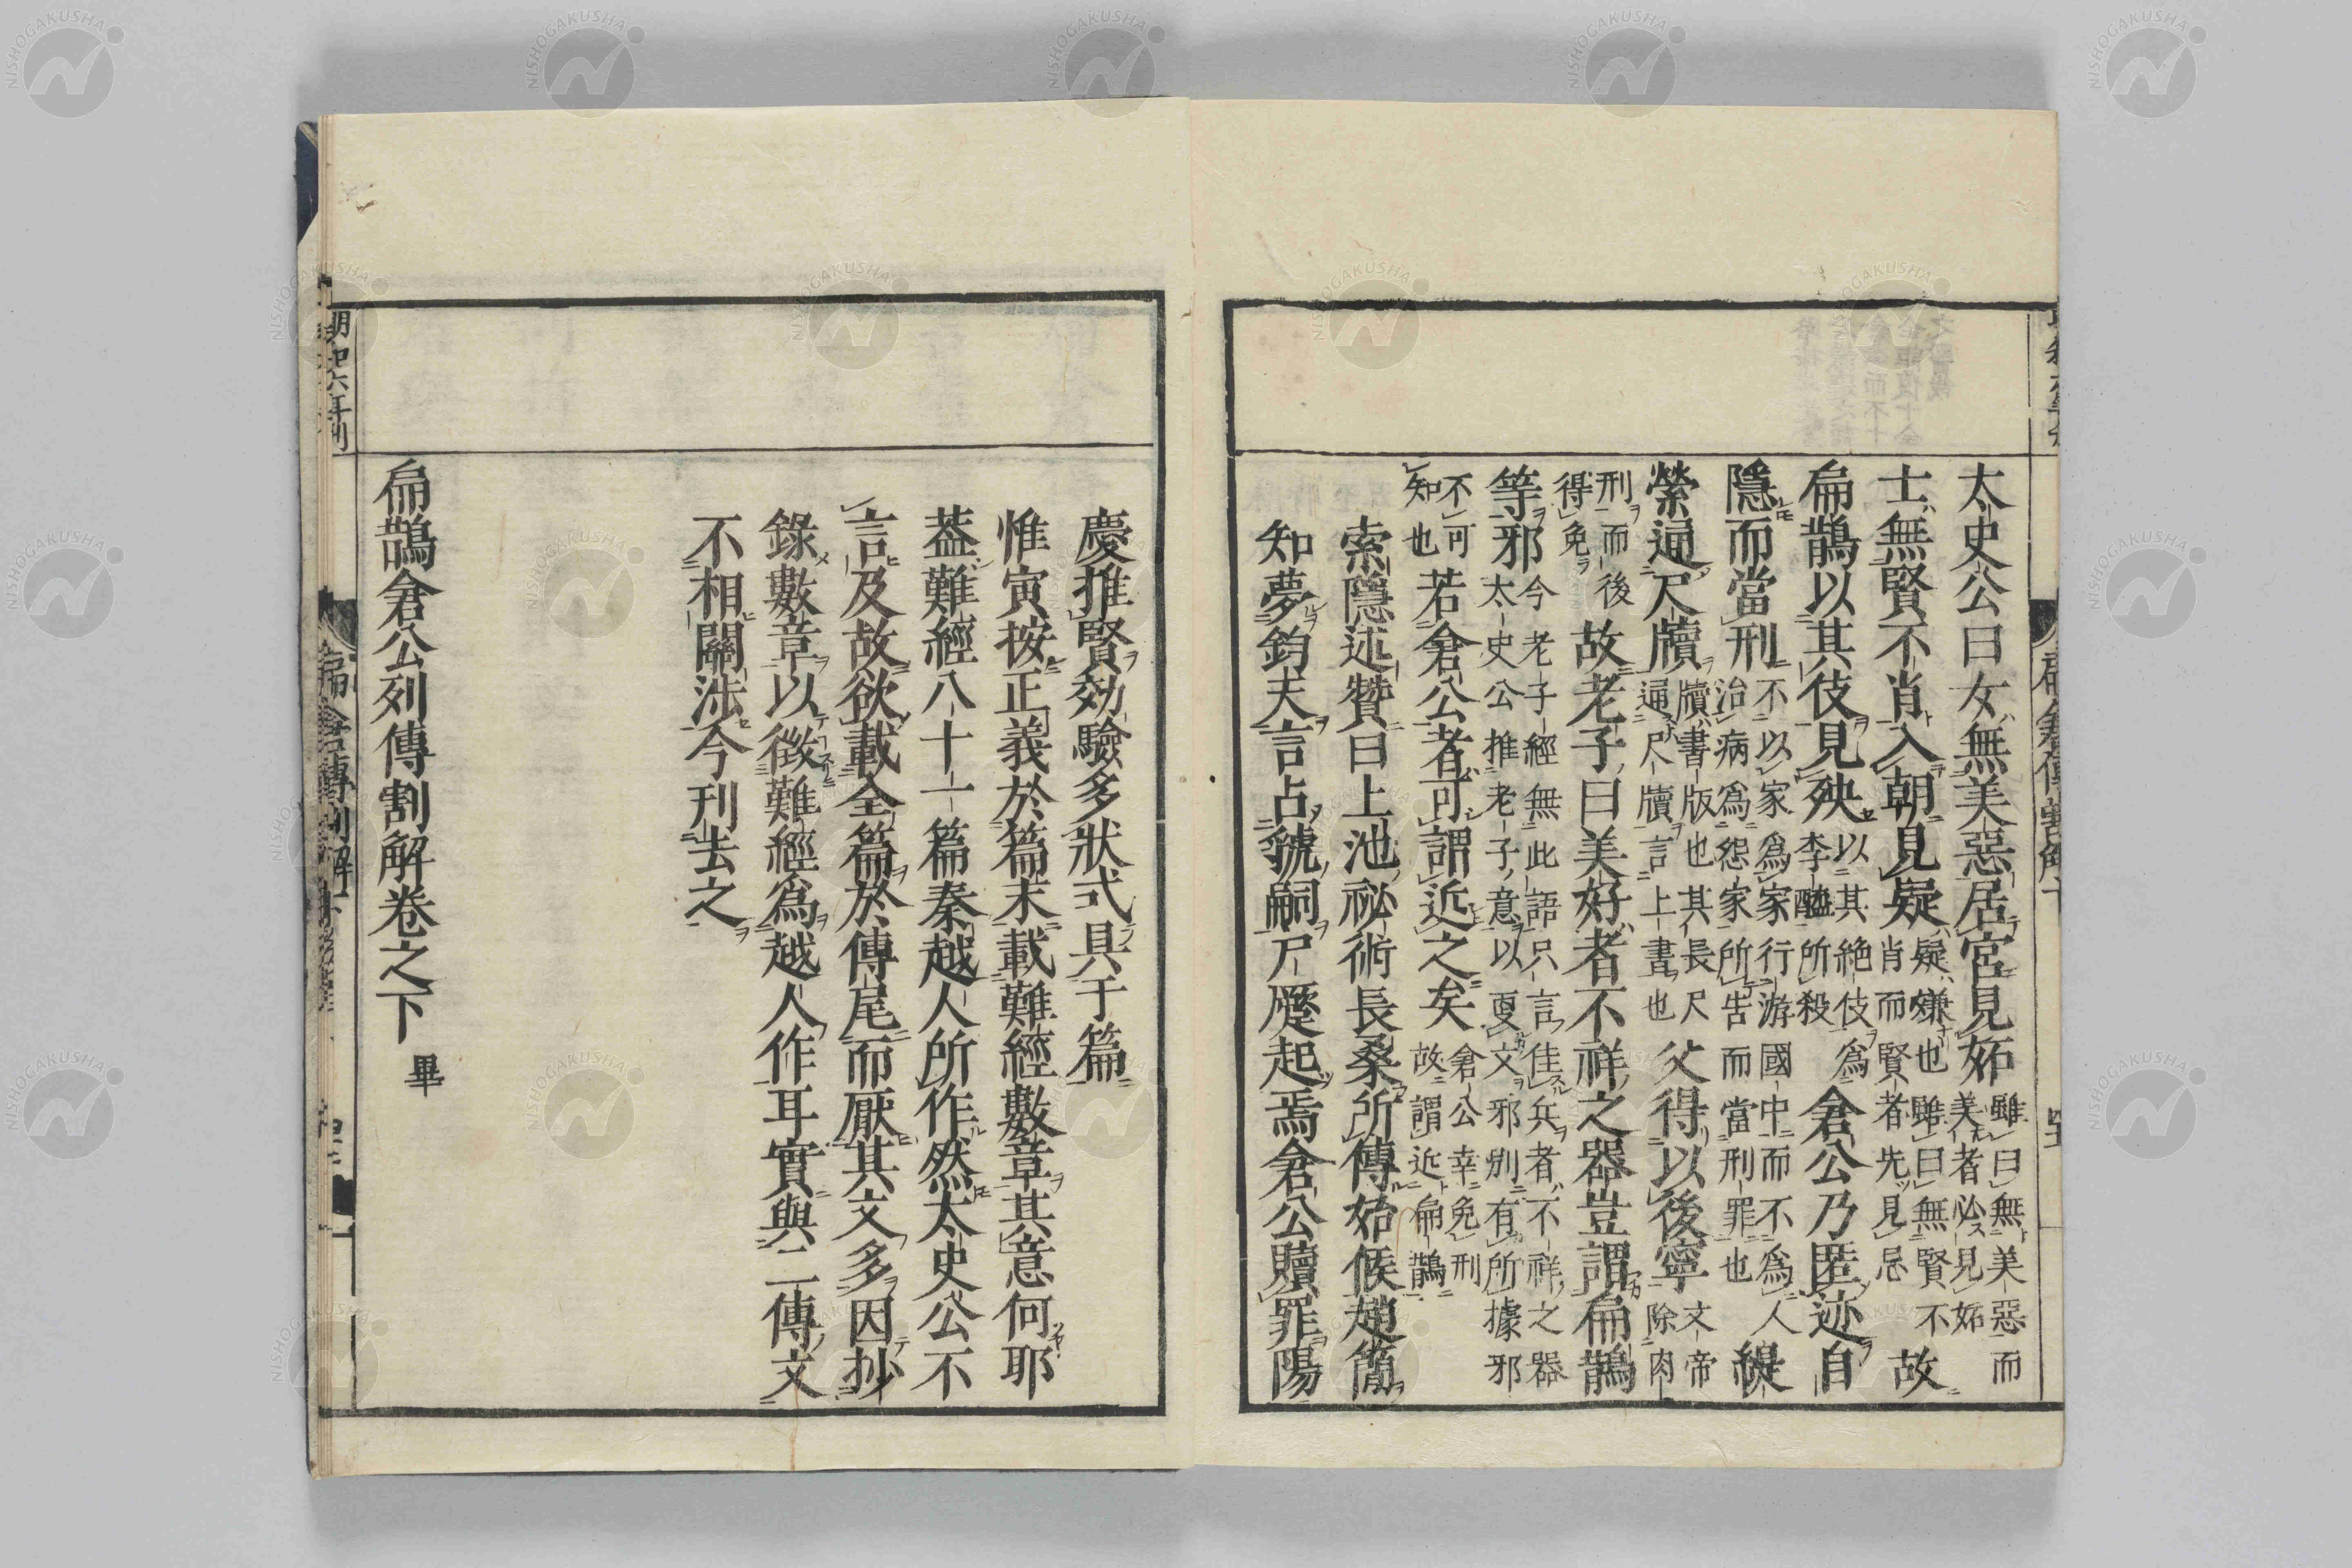 太史公曰女無美惡居宮見妬雖曰無美惡而美者必見妬
士無賢不肖入朝見疑疑嫌也雖曰無賢不肖而賢者先見忌故
扁鵲以其伎見殃以其絶伎爲李醯所殺倉公乃匿迹自
隱而當刑不以家爲家行游國中而不爲人治病爲怨家所告而當刑罪也緹
縈通尺牘牘書版也其長尺通尺牘言上書也父得以後寧文帝除肉
刑而後得免故老子曰美好者不祥之器豈謂扁鵲
等邪今老子經無此語只言佳兵者不祥之器太史公推老子意以更文邪別有所據邪
不可知也若倉公者可謂近之矣倉公幸免刑故謂近扁鵲
索隱述贊曰上池祕術長桑所傳始候趙簡
知夢鈞天言占虢嗣尸蹷起焉倉公贖罪陽
慶推賢効驗多狀式具于篇
惟寅按正義於篇末載難經數章其意何耶
葢難經八十一篇秦越人所作然太史公不
言及故欲載全篇於傳尾而厭其文多因抄
錄數章以徵難經爲越人作耳實與二傳文
不相關涉今刊去之
扁鵲倉公列傳割解卷之下 畢